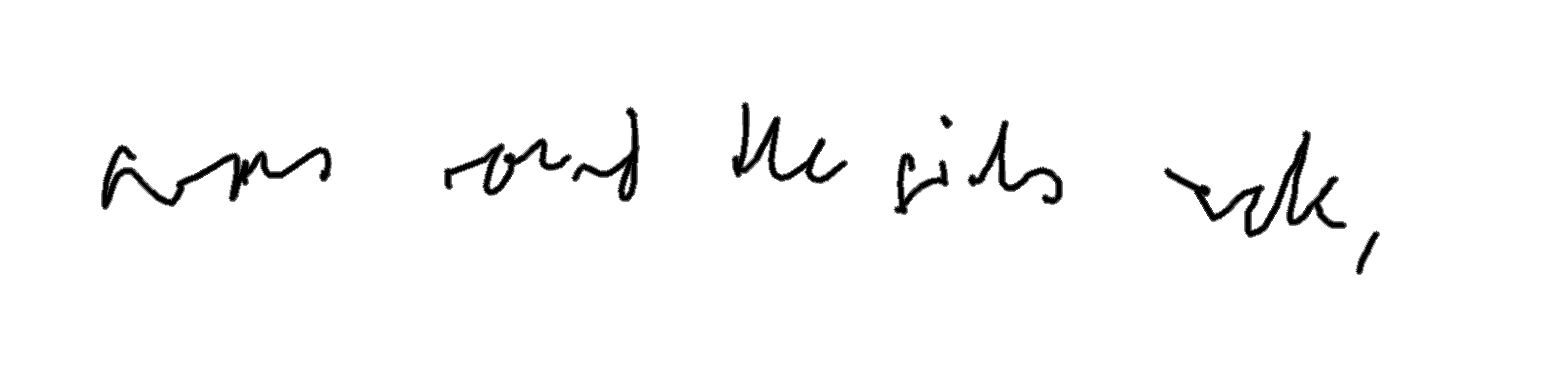 arms round the girls neck,